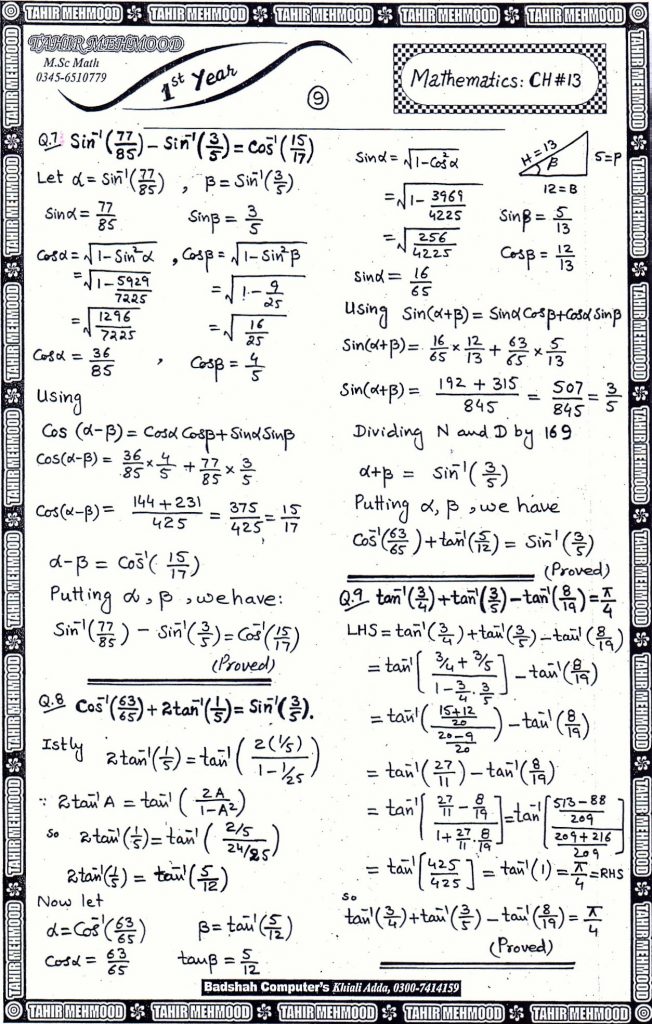 TAHIR MEHMOOD TAHIR MEHMOOD TAHIR MEHMOOD TAHIR MEHMOOD TAHIR MEHMOOD
TAHIR MEHMOOD
M.Sc Math
0345-6510779
1st Year
9
Mathematics: CH#13
Q.7 Sin⁻¹(77/85) − Sin⁻¹(3/5) = Cos⁻¹(15/17)
Let α = Sin⁻¹(77/85) , β = Sin⁻¹(3/5)
Sinα = 77/85 Sinβ = 3/5
Cosα = √(1−Sin²α) , Cosβ = √(1−Sin²β)
= √(1 − 5929/7225) = √(1 − 9/25)
= √(1296/7225) = √(16/25)
Cosα = 36/85 , Cosβ = 4/5
Using
Cos (α−β) = Cosα Cosβ + Sinα Sinβ
Cos(α−β) = 36/85 × 4/5 + 77/85 × 3/5
Cos(α−β) = (144 + 231)/425 = 375/425 = 15/17
α−β = Cos⁻¹(15/17)
Putting α, β, we have:
Sin⁻¹(77/85) − Sin⁻¹(3/5) = Cos⁻¹(15/17)
(Proved)
Q.8 Cos⁻¹(63/65) + 2tan⁻¹(1/5) = Sin⁻¹(3/5).
Istly 2tan⁻¹(1/5) = tan⁻¹(2(1/5)/(1 − 1/25))
∵ 2tan⁻¹A = tan⁻¹(2A/(1−A²))
so 2tan⁻¹(1/5) = tan⁻¹((2/5)/(24/25))
2tan⁻¹(1/5) = tan⁻¹(5/12)
Now let
α = Cos⁻¹(63/65) β = tan⁻¹(5/12)
Cosα = 63/65 tanβ = 5/12
Sinα = √(1−Cos²α)
= √(1 − 3969/4225)
= √(256/4225)
Sinα = 16/65
H=13
β
5=P
12=B
Sinβ = 5/13
Cosβ = 12/13
Using Sin(α+β) = Sinα Cosβ + Cosα Sinβ
Sin(α+β) = 16/65 × 12/13 + 63/65 × 5/13
Sin(α+β) = (192 + 315)/845 = 507/845 = 3/5
Dividing N and D by 169
α+β = Sin⁻¹(3/5)
Putting α, β, we have
Cos⁻¹(63/65) + tan⁻¹(5/12) = Sin⁻¹(3/5)
(Proved)
Q.9 tan⁻¹(3/4) + tan⁻¹(3/5) − tan⁻¹(8/19) = π/4
LHS = tan⁻¹(3/4) + tan⁻¹(3/5) − tan⁻¹(8/19)
= tan⁻¹[(3/4 + 3/5)/(1 − 3/4 · 3/5)] − tan⁻¹(8/19)
= tan⁻¹(((15+12)/20)/((20−9)/20)) − tan⁻¹(8/19)
= tan⁻¹(27/11) − tan⁻¹(8/19)
= tan⁻¹[(27/11 − 8/19)/(1 + 27/11 · 8/19)] = tan⁻¹[((513−88)/209)/((209+216)/209)]
= tan⁻¹[425/425] = tan⁻¹(1) = π/4 = RHS
so
tan⁻¹(3/4) + tan⁻¹(3/5) − tan⁻¹(8/19) = π/4
(Proved)
Badshah Computer's Khiali Adda, 0300-7414159
TAHIR MEHMOOD TAHIR MEHMOOD TAHIR MEHMOOD TAHIR MEHMOOD TAHIR MEHMOOD